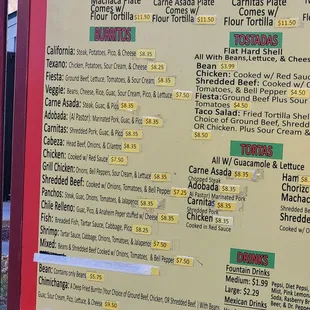 Machaca Plate
Comes w/
Flour Tortilla $11.50
Carne Asada Plate
Comes w/
Flour Tortilla $11.50
Carnitas Plate
Comes w/
Flour Tortilla $11.50
BURRITOS
California: Steak, Potatoes, Pico, & Cheese $8.35
Texano: Chicken, Potatoes, Sour Cream, & Cheese $8.25
Fiesta: Ground Beef, Lettuce, Tomatoes, & Sour Cream $8.35
Veggie: Beans, Cheese, Rice, Guac, Sour Cream, Pico, & Lettuce $7.50
Carne Asada: Steak, Guac, & Pico $8.35
Adobada: (Al Pastor) Marinated Pork, Guac, & Pico $8.35
Carnitas: Shredded Pork, Guac, & Pico $8.35
Cabeza: Head Beef, Onions, & Cilantro $8.35
Chicken: Cooked w/ Red Sauce $7.50
Grill Chicken: Onions, Bell Peppers, Sour Cream, & Lettuce $8.35
Shredded Beef: Cooked w/ Onions, Tomatoes, & Bell Peppers $7.25
Panchos: Steak, Guac, Onions, Tomatoes, & Jalapenos $8.35
Chile Relleno: Guac, Pico, & Anaheim Pepper stuffed w/ Cheese $8.35
Fish: Breaded Fish, Tartar Sauce, Cabbage, Pico $8.25
Shrimp: Tartar Sauce, Cabbage, Onions, Tomatoes, & Jalapenos $7.50
Mixed: Beans & Shredded Beef Cooked w/ Onions, Tomatoes, & Bell Peppers $7.50
Bean: Contains only Beans $5.75
Chimichanga: A Deep Fried Burrito (Your Choice of Ground Beef, Chicken, OR Shredded Beef) With Beans
Guac, Sour Cream, Pico, Lettuce, & Cheese $9.50
TOSTADAS
Flat Hard Shell
All With Beans, Lettuce, & Cheese
Bean $3.99
Chicken: Cooked w/ Red Sauce
Shredded Beef: Cooked w/
Tomatoes, & Bell Pepper $4.50
Fiesta: Ground Beef Plus Sour
Tomatoes $4.50
Taco Salad: Fried Tortilla Shell
Choice of Ground Beef, Shredded
OR Chicken. Plus Sour Cream &
$8.50
TORTAS
All W/ Guacamole & Lettuce
Carne Asada $8.35
Chopped Steak
Adobada $8.35
Al Pastor/ Marinated Pork
Carnitas $8.35
Shredded Pork
Chicken $8.35
Cooked in Red Sauce
Ham $8
Chorizo
Machac
Shredded
DRINKS
Fountain Drinks
Medium: $1.99
Large: $2.29
Mexican Drinks
Pepsi, Diet Pepsi,
Mist, Pink Lemon
Soda, Raspberry
Beer, & Dr. Pepper